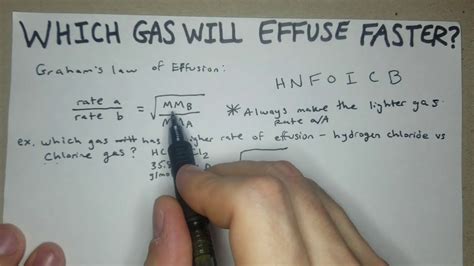 WHICH GAS WILL EFFUSE FASTER?
Graham's law of Effusion:
H N F O I C B
rate a
rate b
=
√
MMB
A
* Always make the lighter gas
Rate a/A
ex. which gas has higher rate of effusion - hydrogen chloride vs
Chlorine gas?